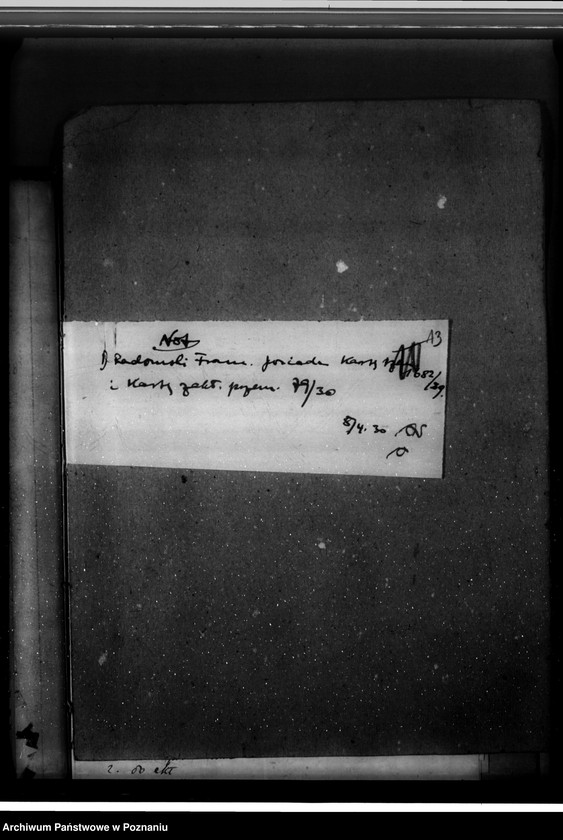 A3
Not
p Radomski Franc. posiada Kartę 1682/29.
i Kartę zakł. przem. 79/30
8/4.30
2. do akt
Archiwum Państwowe w Poznaniu